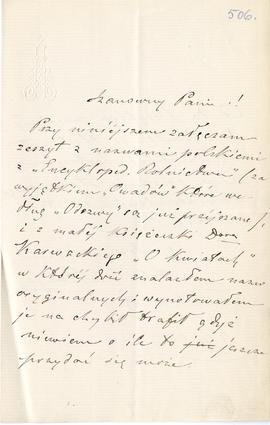 506.
Szanowny Panie!!
Przy niniejszem załączam
zeszyt z nazwami polskiemi
z „Encyklopd. Rolnictwa" (za
wyjątkiem „Owadów" które we-
dług „Odezwy" są już przejrzane)
i z małej książeczki Dora
Karwackiego „O kwiatach"
w której dziś znalazłem nazw
oryginalnych i wynotowałem
je na chybił trafił gdyż
niewiem o ile to już jeszcze
przydać się może